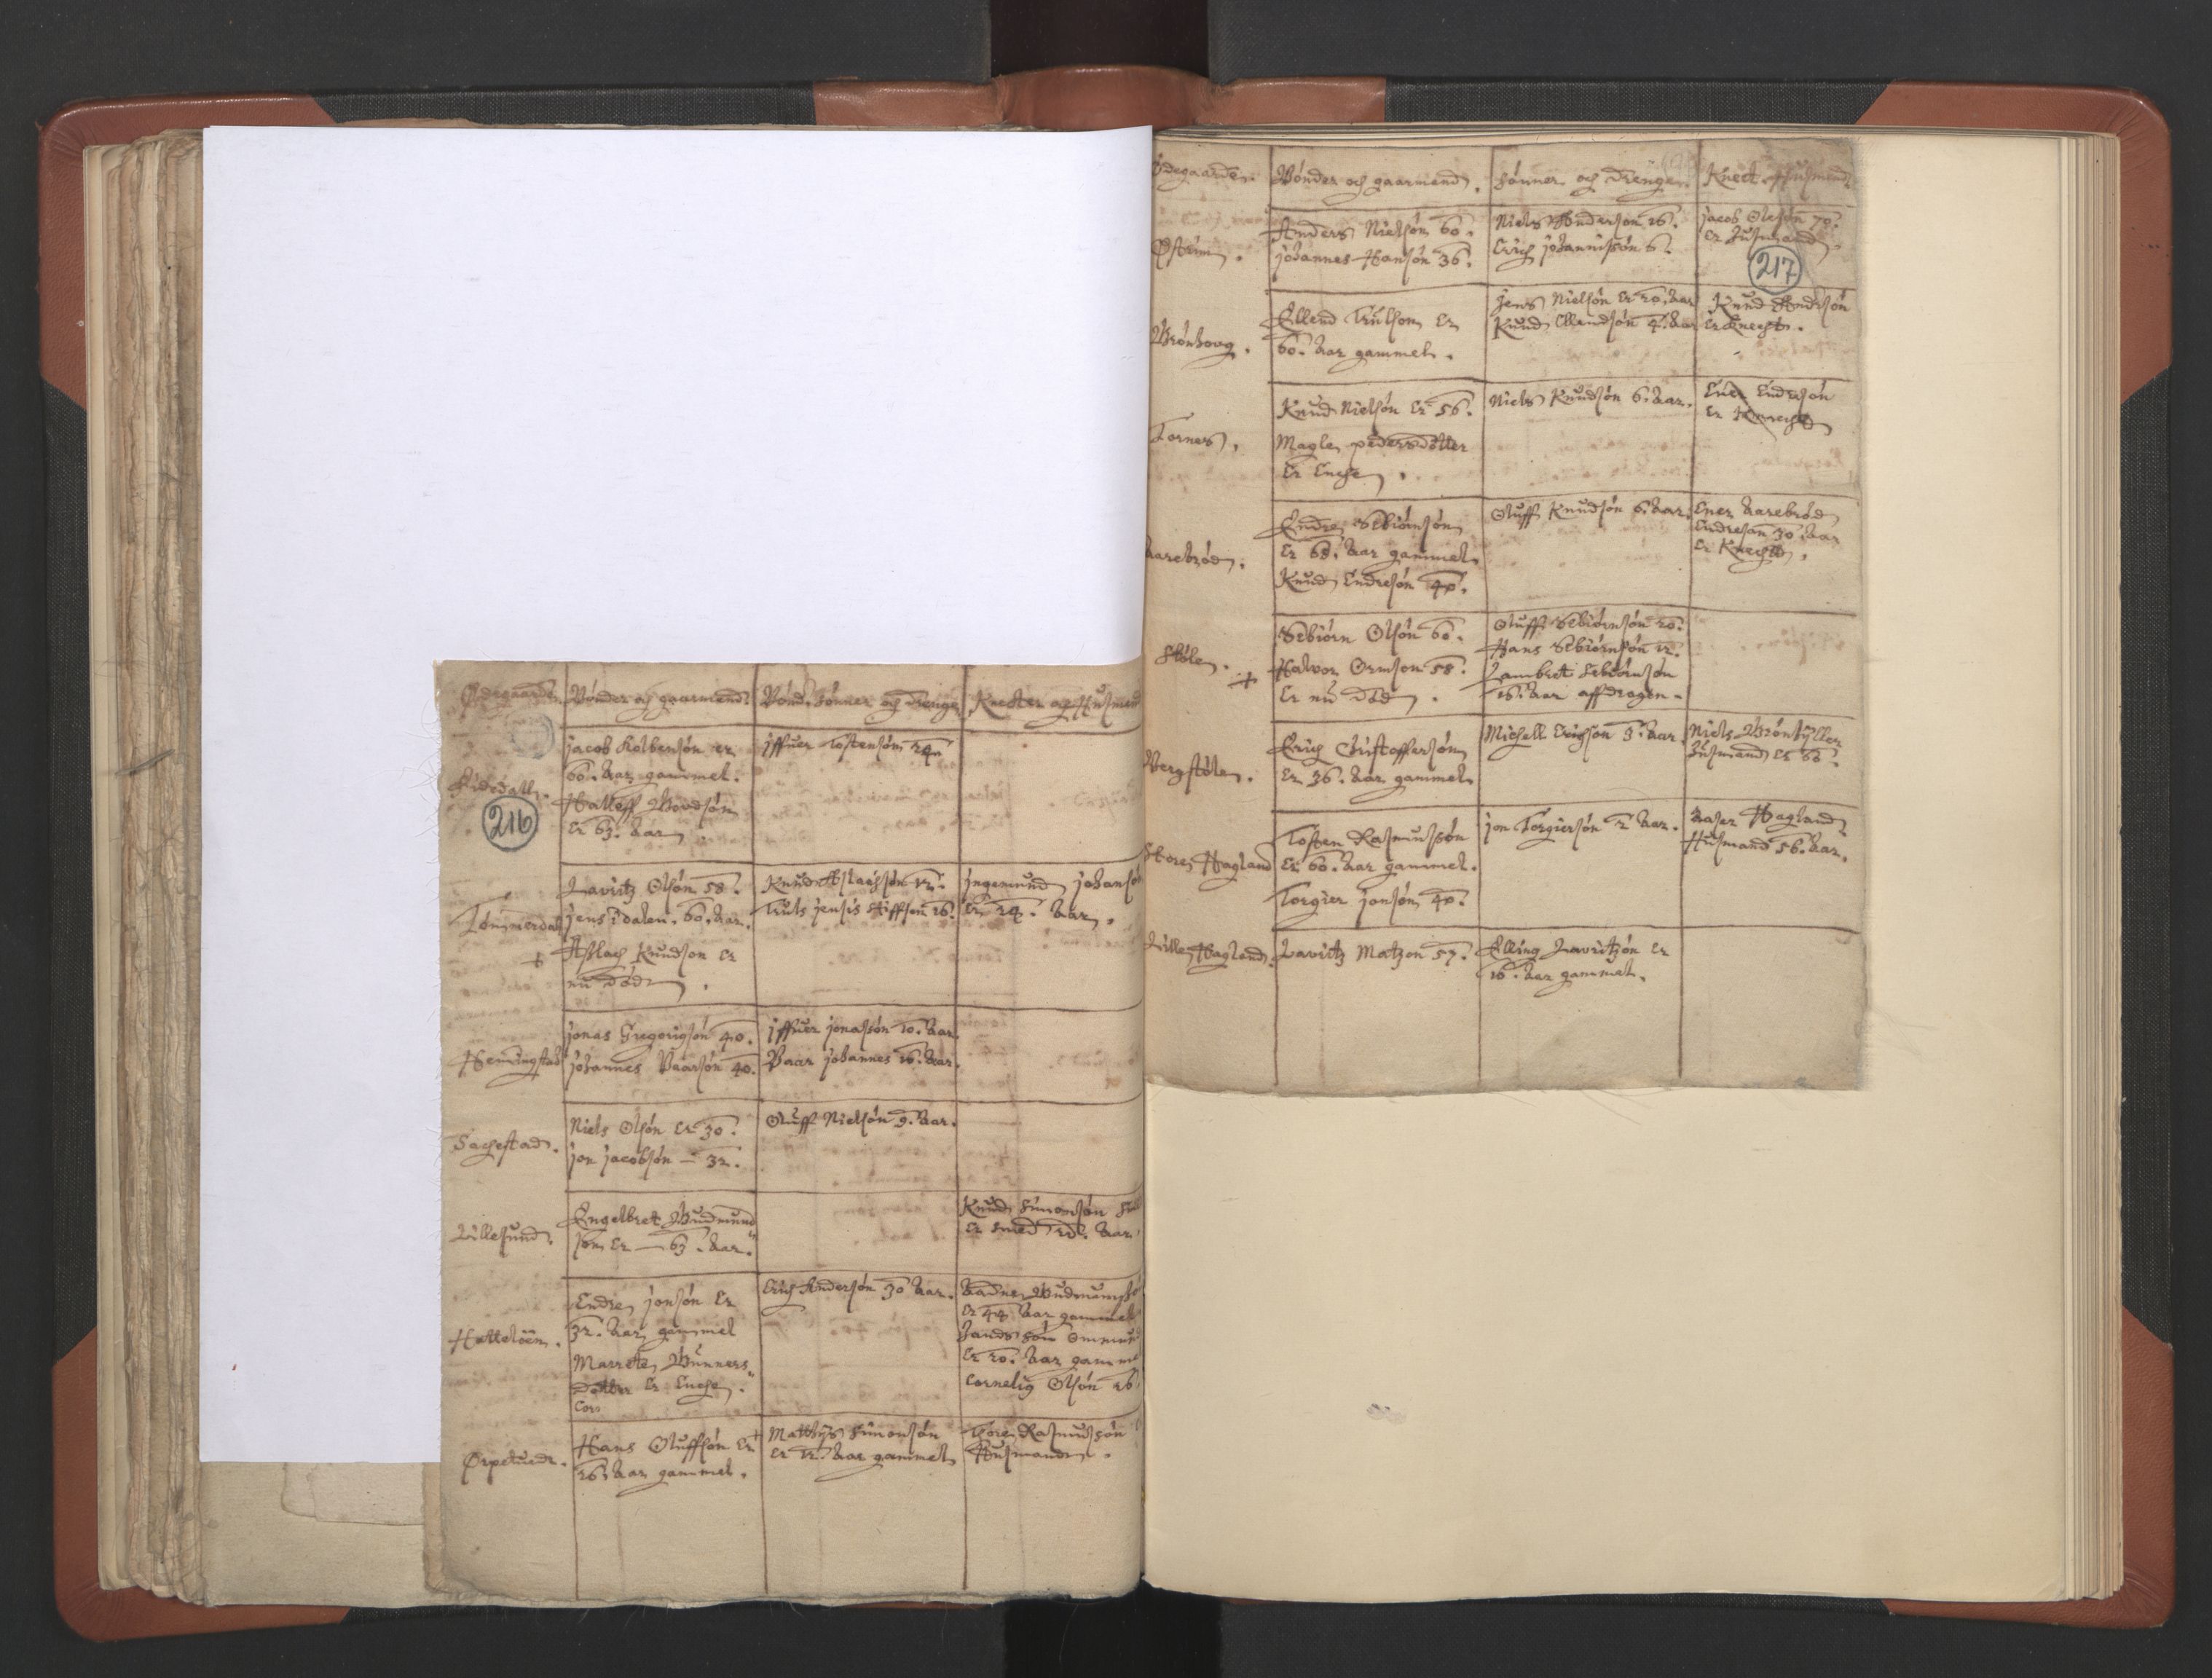 Ødegaarden. Bønder og gaarmend. Bønd. sønner og Drenge Knecter og Husmend
jacob Kolbensøn er
60. Aar gammel.
Halleff
er 63. Aar
jffuer Tostensøn 24
216
Tømmerdal
Lavritz Olsøn 58.
jens i dalen. 60. Aar.
+ Asslach Knudsøn er
nu død.
Knud Aslachsøn 12.
Truls jensis stiffsøn 16.
jngemund johansøn
er 24. Aar.
Hemingstad
jonas Gregorigsøn 40.
johannes Baarsøn 40.
jffuer jonasøn 10. Aar.
Baar johannes 16. Aar.
Sachestad.
Niels Olsøn er 30.
jon jacobsøn – 32.
Oluff Nielsøn 9. Aar.
Lillesund.
Engelbret Gudmund
søn er — 63. Aar.
Knud simonsøn
er smed Aar
Hatteløen.
Endre jonsøn er
32. Aar gammel
Marrete Gunners
dotter er Encke.
Cor
Erich Andersøn 30 Aar.
Aadne
er 44 Aar gammel
Lands søn Ommund
er 20. Aar gamme
Cornelig Olsøn 26
Ørpetuedt.
Hans Oluffsøn er +
26. Aar gammel.
Matthis simonsøn
er 12. Aar gammel
Tore Rasmussøn
Husmand.
Ødegaarden. Bønder og gaarmend. sønner og Drenge. Knect. Husmend
Østrim.
Anders Nielsøn 60.
johannes Hansøn 36.
Niels Andersøn 16.
Erich johannissøn 6.
jacob Olesøn 70.
er Husmand.
217
Grønhoug.
Ellend Trulsøn er
60. Aar gammel.
jens Nielsøn er 20. Aar
Knud Ellendsøn 4. Aar
Knud Andersøn
er Knecht.
Tornes.
Knud Nielsøn er 56.
Magle pedersdotter
er Encke.
Niels Knudsøn 6. Aar.
Endresøn
er Knecht
Aarebrød.
Endre Sebiørnsøn
er 68. Aar gammel
Knud Endresøn 40.
Oluff Knudsøn 6. Aar.
Aarebrød
Endresøn 30. Aar
er Knecht.
Stølen. +
Sebiørn Olsøn 60.
Halvor Ormsøn 58.
er nu død.
Oluff Sebiørnsøn 20.
Hans Sebiørnsøn 12.
Lambret Sebiørnsøn
16. Aar affdragen.
Bergstølen.
Erich Christoffersøn
er 36. Aar gammel
Michell Erichsøn 3. Aar.
Niels
Husmand er 66.
Store Hagland
Tosten Rasmussøn
er 60. Aar gammel.
Torgier jonsøn 40.
jon Torgiersøn 2 Aar.
Hagland
Husmand 56. Aar.
Lille Hagland.
Lavritz Matzøn 57.
Elling Lavritzøn er
10. Aar gammel.